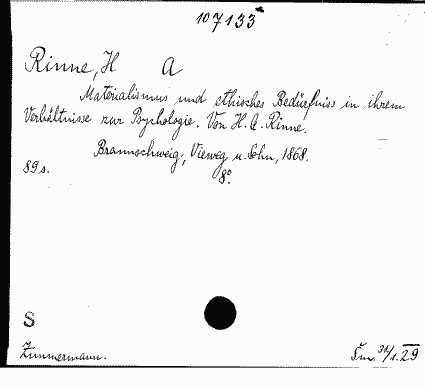 107133
Rinne, H A
Materialismus und ethisches Bedürfniss in ihrem
Verhältnisse zur Psychologie. Von H. A. Rinne.
Braunschweig, Vieweg u. Sohn, 1868.
89 s. 8°.
S
Zimmermann. 31/1.29